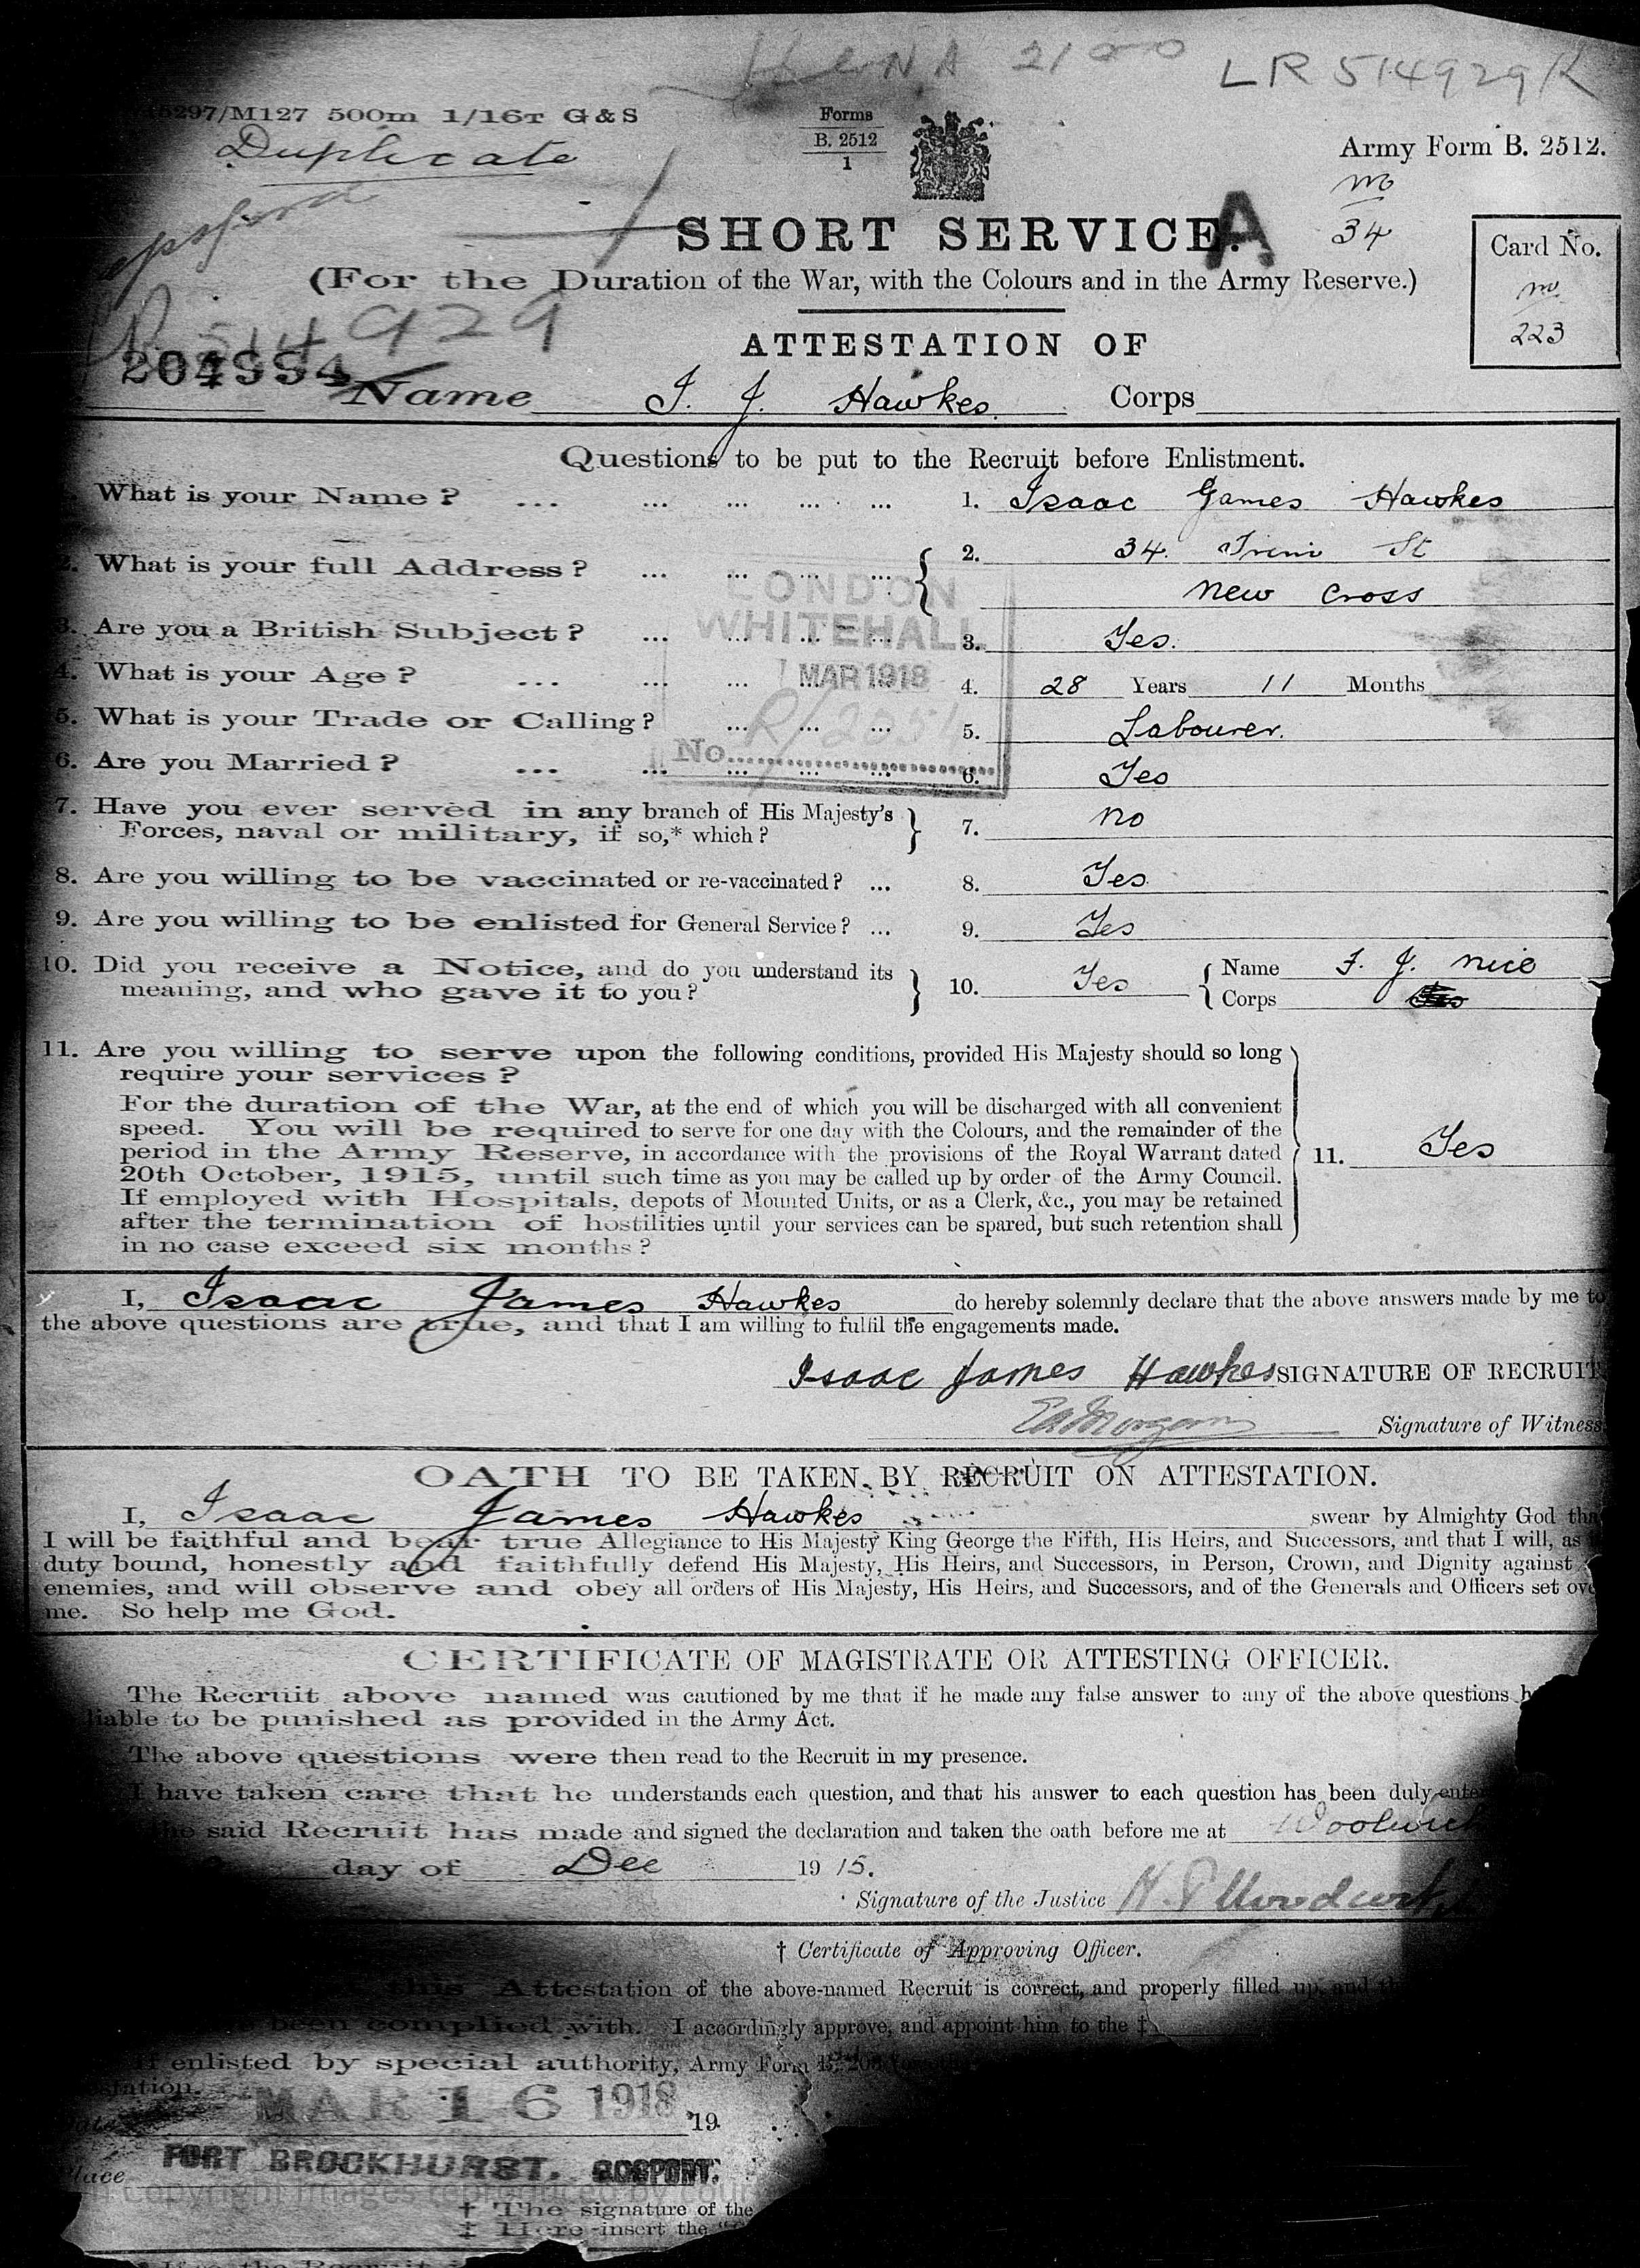 2100 LR 514929
5297/M127 500m 1/16T G & S Forms
B. 2512
1
Duplicate
Army Form B. 2512.
34
SHORT SERVICE. A
Card No.
223
(For the Duration of the War, with the Colours and in the Army Reserve.)
514929
ATTESTATION OF
Name I. J. Hawkes. Corps
Questions to be put to the Recruit before Enlistment.
What is your Name ? ... ... ... ... ... 1. Isaac James Hawkes
2. What is your full Address ? ... ... ... ... { 2. 34. St
New Cross
LONDON
WHITEHALL
3. Are you a British Subject ? ... ... ... ... 3. Yes.
MAR 1918
4. What is your Age ? ... ... ... ... ... 4. 28 Years 11 Months
5. What is your Trade or Calling ? ... ... ... 5. Labourer.
No.
6. Are you Married ? ... ... ... ... ... 6. Yes
7. Have you ever served in any branch of His Majesty's
Forces, naval or military, if so,* which ? } 7. No
8. Are you willing to be vaccinated or re-vaccinated ? ... 8. Yes
9. Are you willing to be enlisted for General Service ? ... 9. Yes
10. Did you receive a Notice, and do you understand its
meaning, and who gave it to you ? } 10. Yes { Name F. J. Nice
Corps
11. Are you willing to serve upon the following conditions, provided His Majesty should so long
require your services ?
For the duration of the War, at the end of which you will be discharged with all convenient
speed. You will be required to serve for one day with the Colours, and the remainder of the
period in the Army Reserve, in accordance with the provisions of the Royal Warrant dated
20th October, 1915, until such time as you may be called up by order of the Army Council.
If employed with Hospitals, depots of Mounted Units, or as a Clerk, &c., you may be retained
after the termination of hostilities until your services can be spared, but such retention shall
in no case exceed six months ? } 11. Yes
I, Isaac James Hawkes do hereby solemnly declare that the above answers made by me to
the above questions are true, and that I am willing to fulfil the engagements made.
Isaac James Hawkes SIGNATURE OF RECRUIT
Signature of Witness
OATH TO BE TAKEN BY RECRUIT ON ATTESTATION.
I, Isaac James Hawkes swear by Almighty God tha
I will be faithful and bear true Allegiance to His Majesty King George the Fifth, His Heirs, and Successors, and that I will, as
duty bound, honestly and faithfully defend His Majesty, His Heirs, and Successors, in Person, Crown, and Dignity against
enemies, and will observe and obey all orders of His Majesty, His Heirs, and Successors, and of the Generals and Officers set ove
me. So help me God.
CERTIFICATE OF MAGISTRATE OR ATTESTING OFFICER.
The Recruit above named was cautioned by me that if he made any false answer to any of the above questions h
liable to be punished as provided in the Army Act.
The above questions were then read to the Recruit in my presence.
I have taken care that he understands each question, and that his answer to each question has been duly ente
he said Recruit has made and signed the declaration and taken the oath before me at Woolwich
day of Dec 1915.
Signature of the Justice
† Certificate of Approving Officer.
this Attestation of the above-named Recruit is correct, and properly filled up, and th
been complied with. I accordingly approve, and appoint him to the ‡
If enlisted by special authority, Army Form B. 203
station.
MAR 16 1918 19
Place FORT BROCKHURST. GOSPORT.
copyright images reproduced by cour
† The signature of the
‡ Here insert the "C